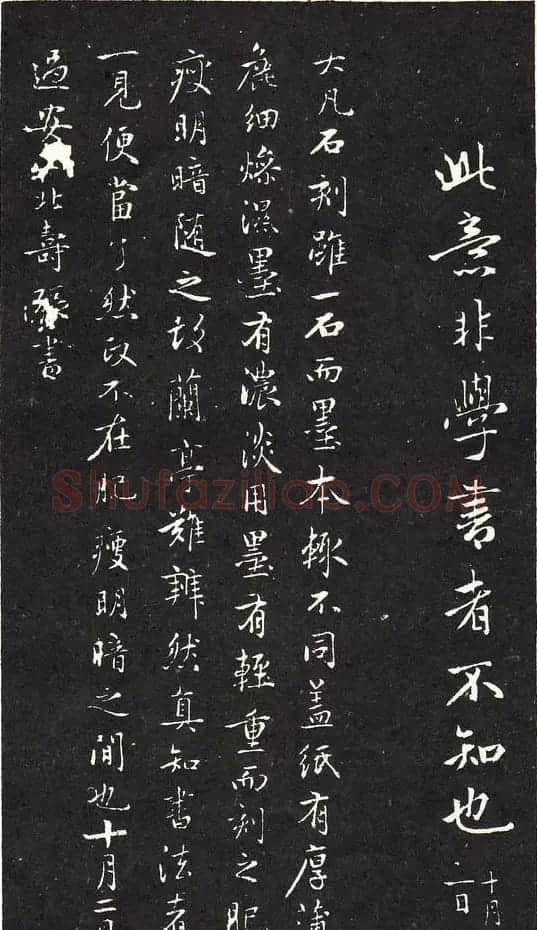 此意非學書者不知也
十月
二日
大凡石刻雖一石而墨本輒不同蓋紙有厚薄
麤細燥濕墨有濃淡用墨有輕重而刻之肥
瘦明暗随之故蘭亭難辨然真知書法者
一見便當了然政不在肥瘦明暗之間也十月二日
過安北壽張書
Shufaziliao.COM